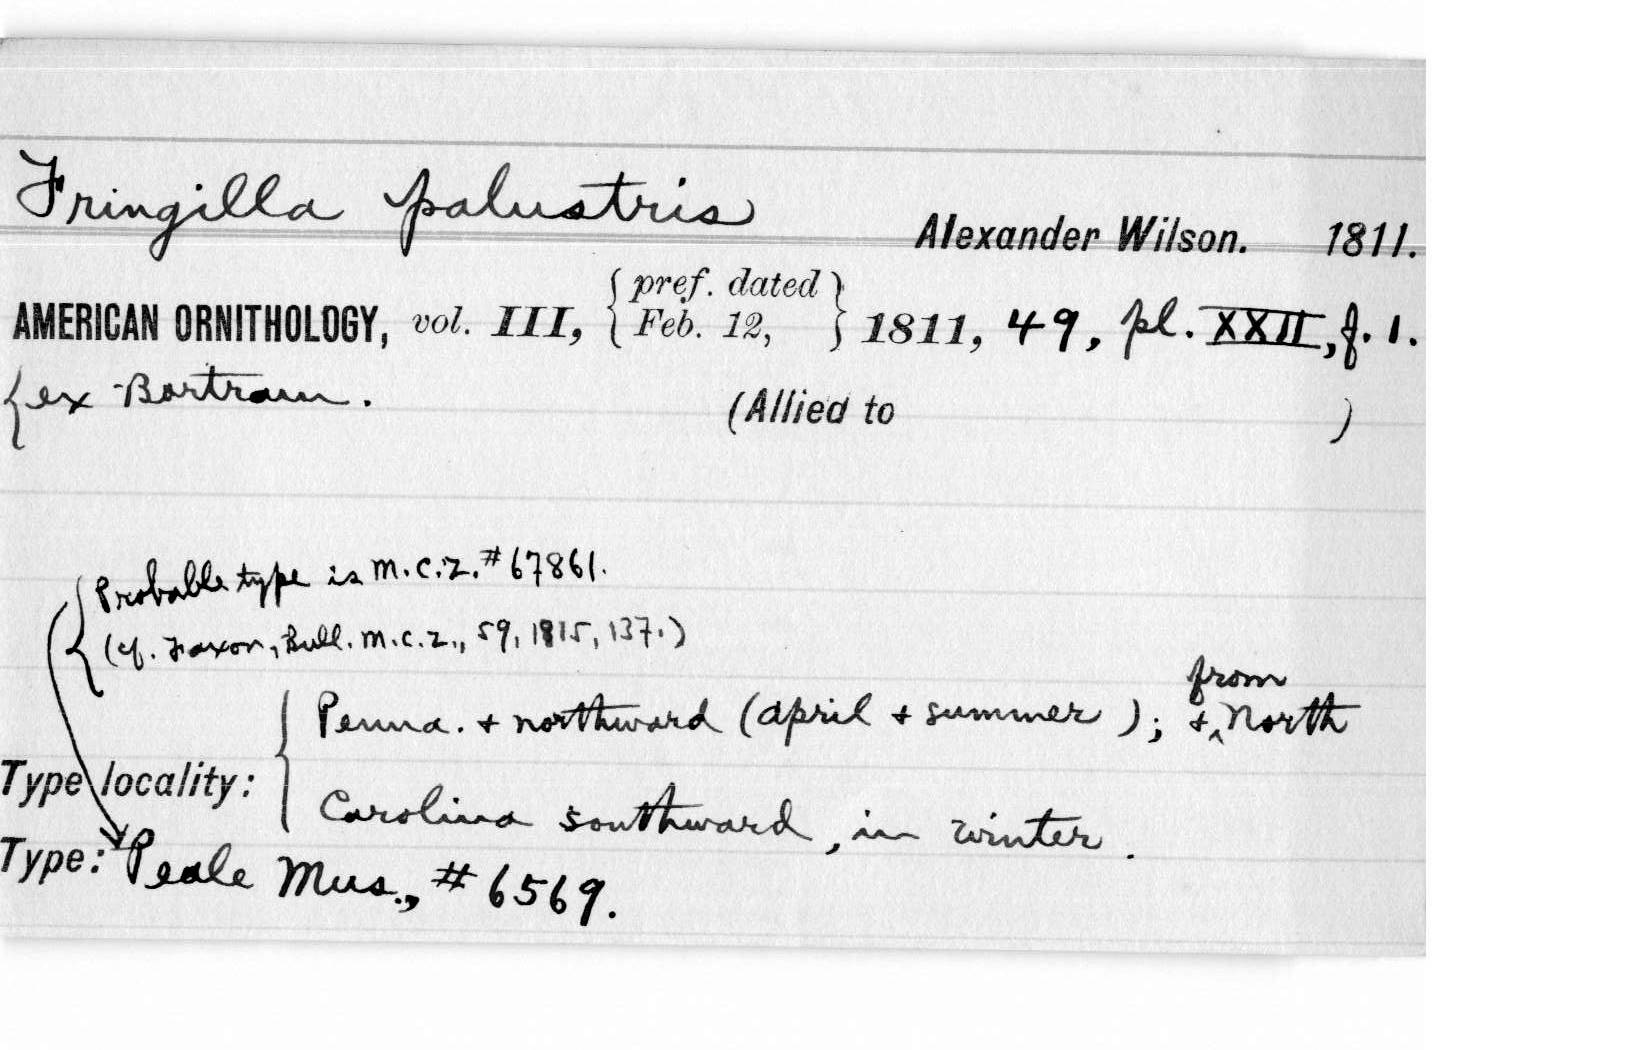 Fringilla palustris
Alexander Wilson. 1811.
AMERICAN ORNITHOLOGY, vol. III, { pref. dated Feb. 12, } 1811, 49, pl. XXII, f. 1.
{ex Bartram. (Allied to )
Probable type is M.C.Z. #67861.
(cf. Faxon, Bull. M.C.Z., 59, 1815, 137.)
Penna. + northward (april + summer); + from North
Type locality:
Carolina southward, in winter.
Type: Peale Mus., #6569.